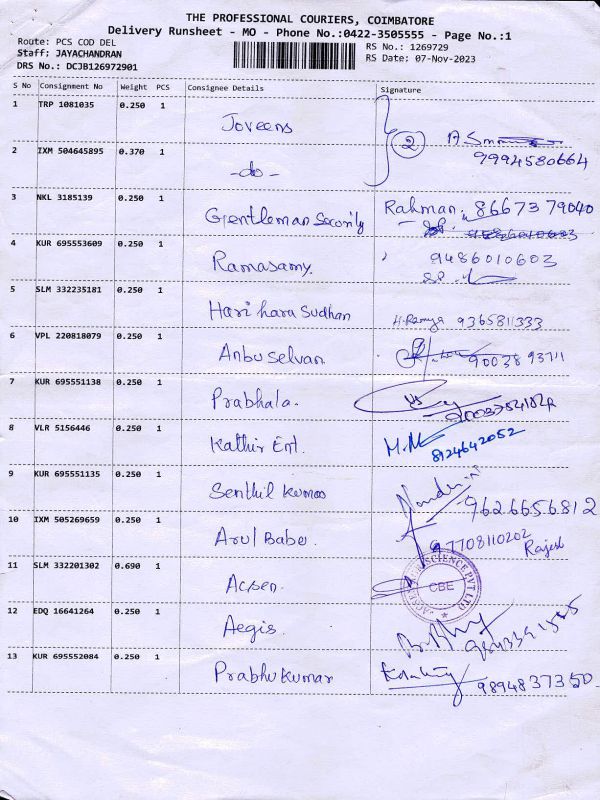 THE PROFESSIONAL COURIERS, COIMBATORE
Delivery Runsheet - MO - Phone No.:0422-3505555 - Page No.:1
Route: PCS COD DEL RS No.: 1269729
Staff: JAYACHANDRAN RS Date: 07-Nov-2023
DRS No.: DCJB126972901
S No Consignment No Weight PCS Consignee Details Signature
1 TRP 1081035 0.250 1
Joveens 2
9994580664
2 IXM 504645895 0.370 1
-do-
3 NKL 3185139 0.250 1
Gentleman Security Rahman 8667379040
4 KUR 695553609 0.250 1
Ramasamy. 9486010603
5 SLM 332235181 0.250 1
Hari hara Sudhan H.Ramya 9365811333
6 VPL 220818079 0.250 1
Anbu Selvan 9003893711
7 KUR 695551138 0.250 1
Prabhala.
8 VLR 5156446 0.250 1
Kathir Ent. 8124642052
9 KUR 695551135 0.250 1
Senthil Kumar 9626656812
10 IXM 505269659 0.250 1
Arul Babu. 97708110202
Rajesh
11 SLM 332201302 0.690 1
Acsen. SCIENCE PVT LTD CBE
12 EDQ 16641264 0.250 1
Aegis.
13 KUR 695552084 0.250 1
Prabhu Kumar 9894837350